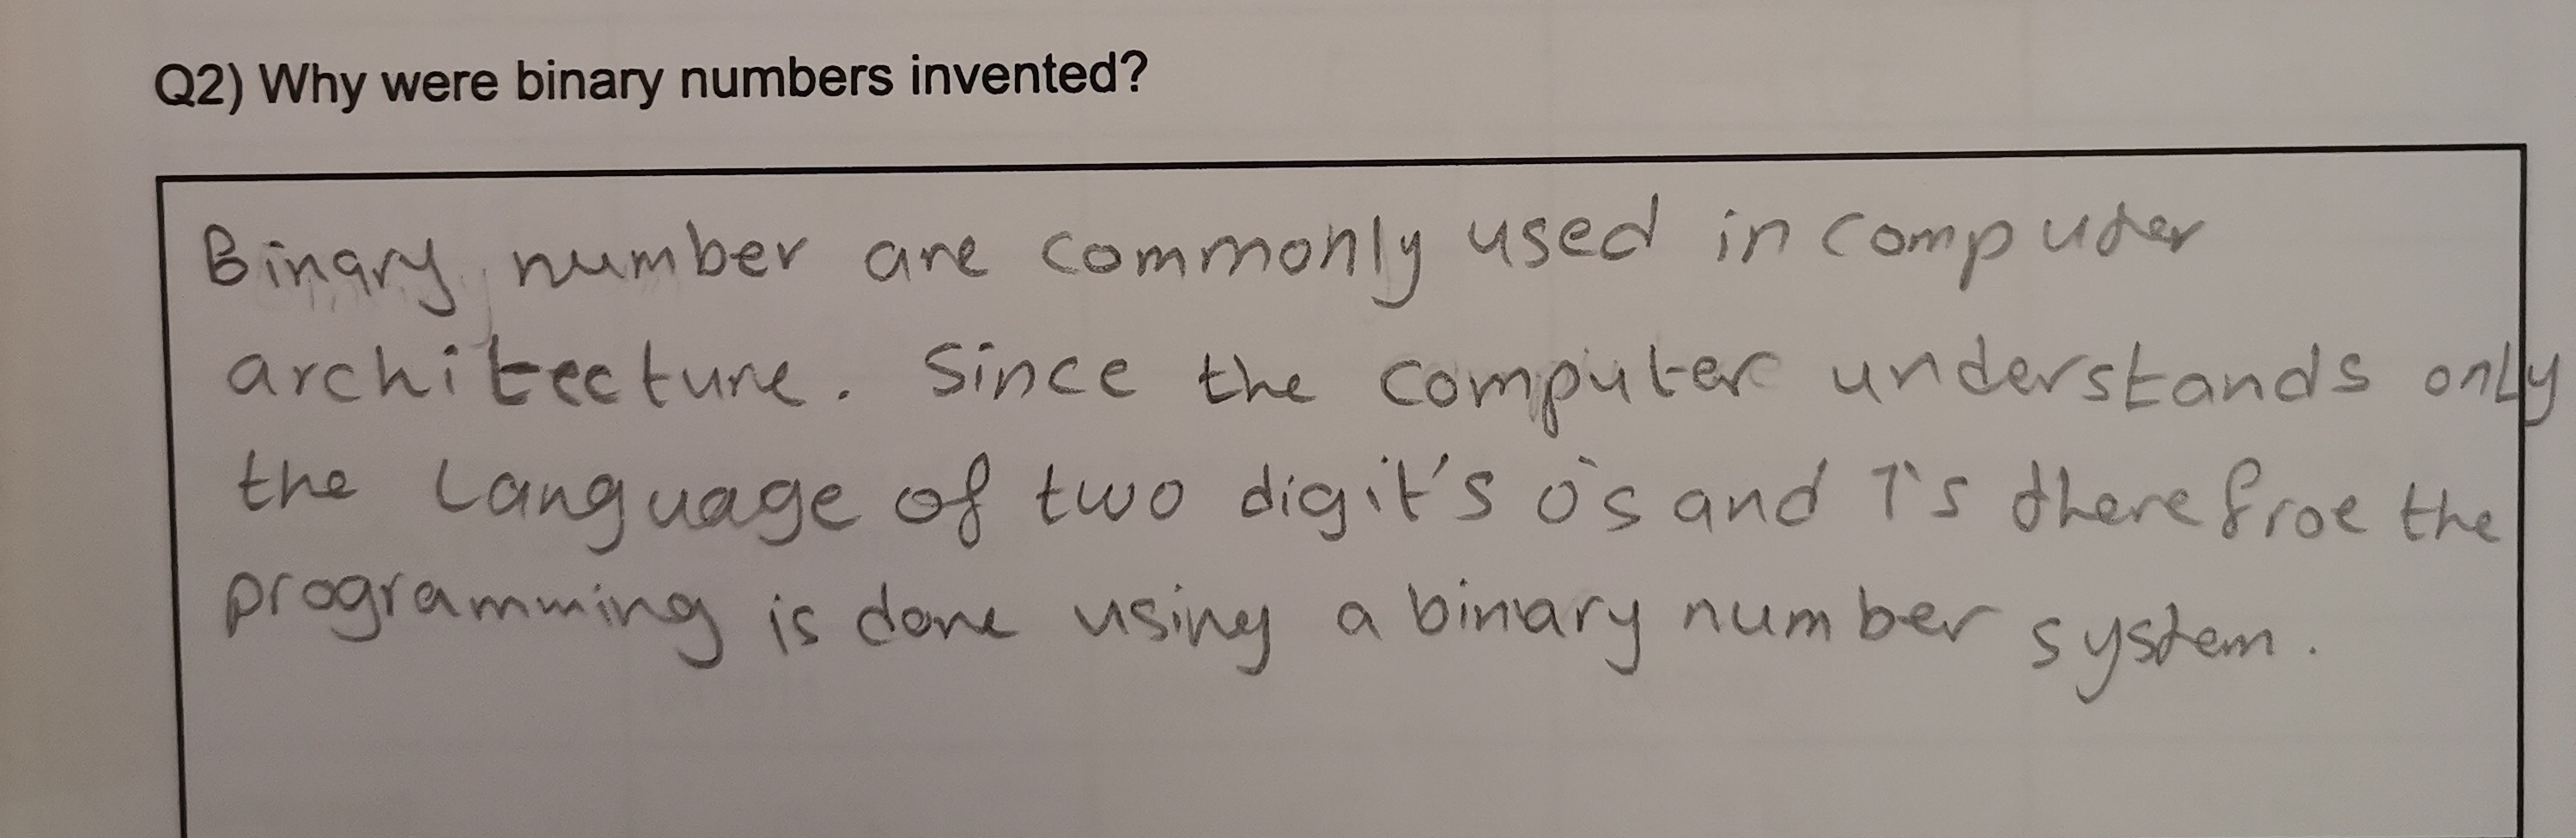 Q2) Why were binary numbers invented?
Binary number are commonly used in computer
architecture. Since the computer understands only
the Language of two digit's 0's and 1's therefroe the
programming is done using a binary number system.